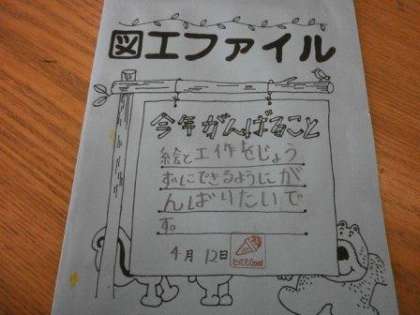 図工ファイル
今年がんばること
絵と工作をじょう
ずにできるようにが
んばりたいで
す。
4月 12日